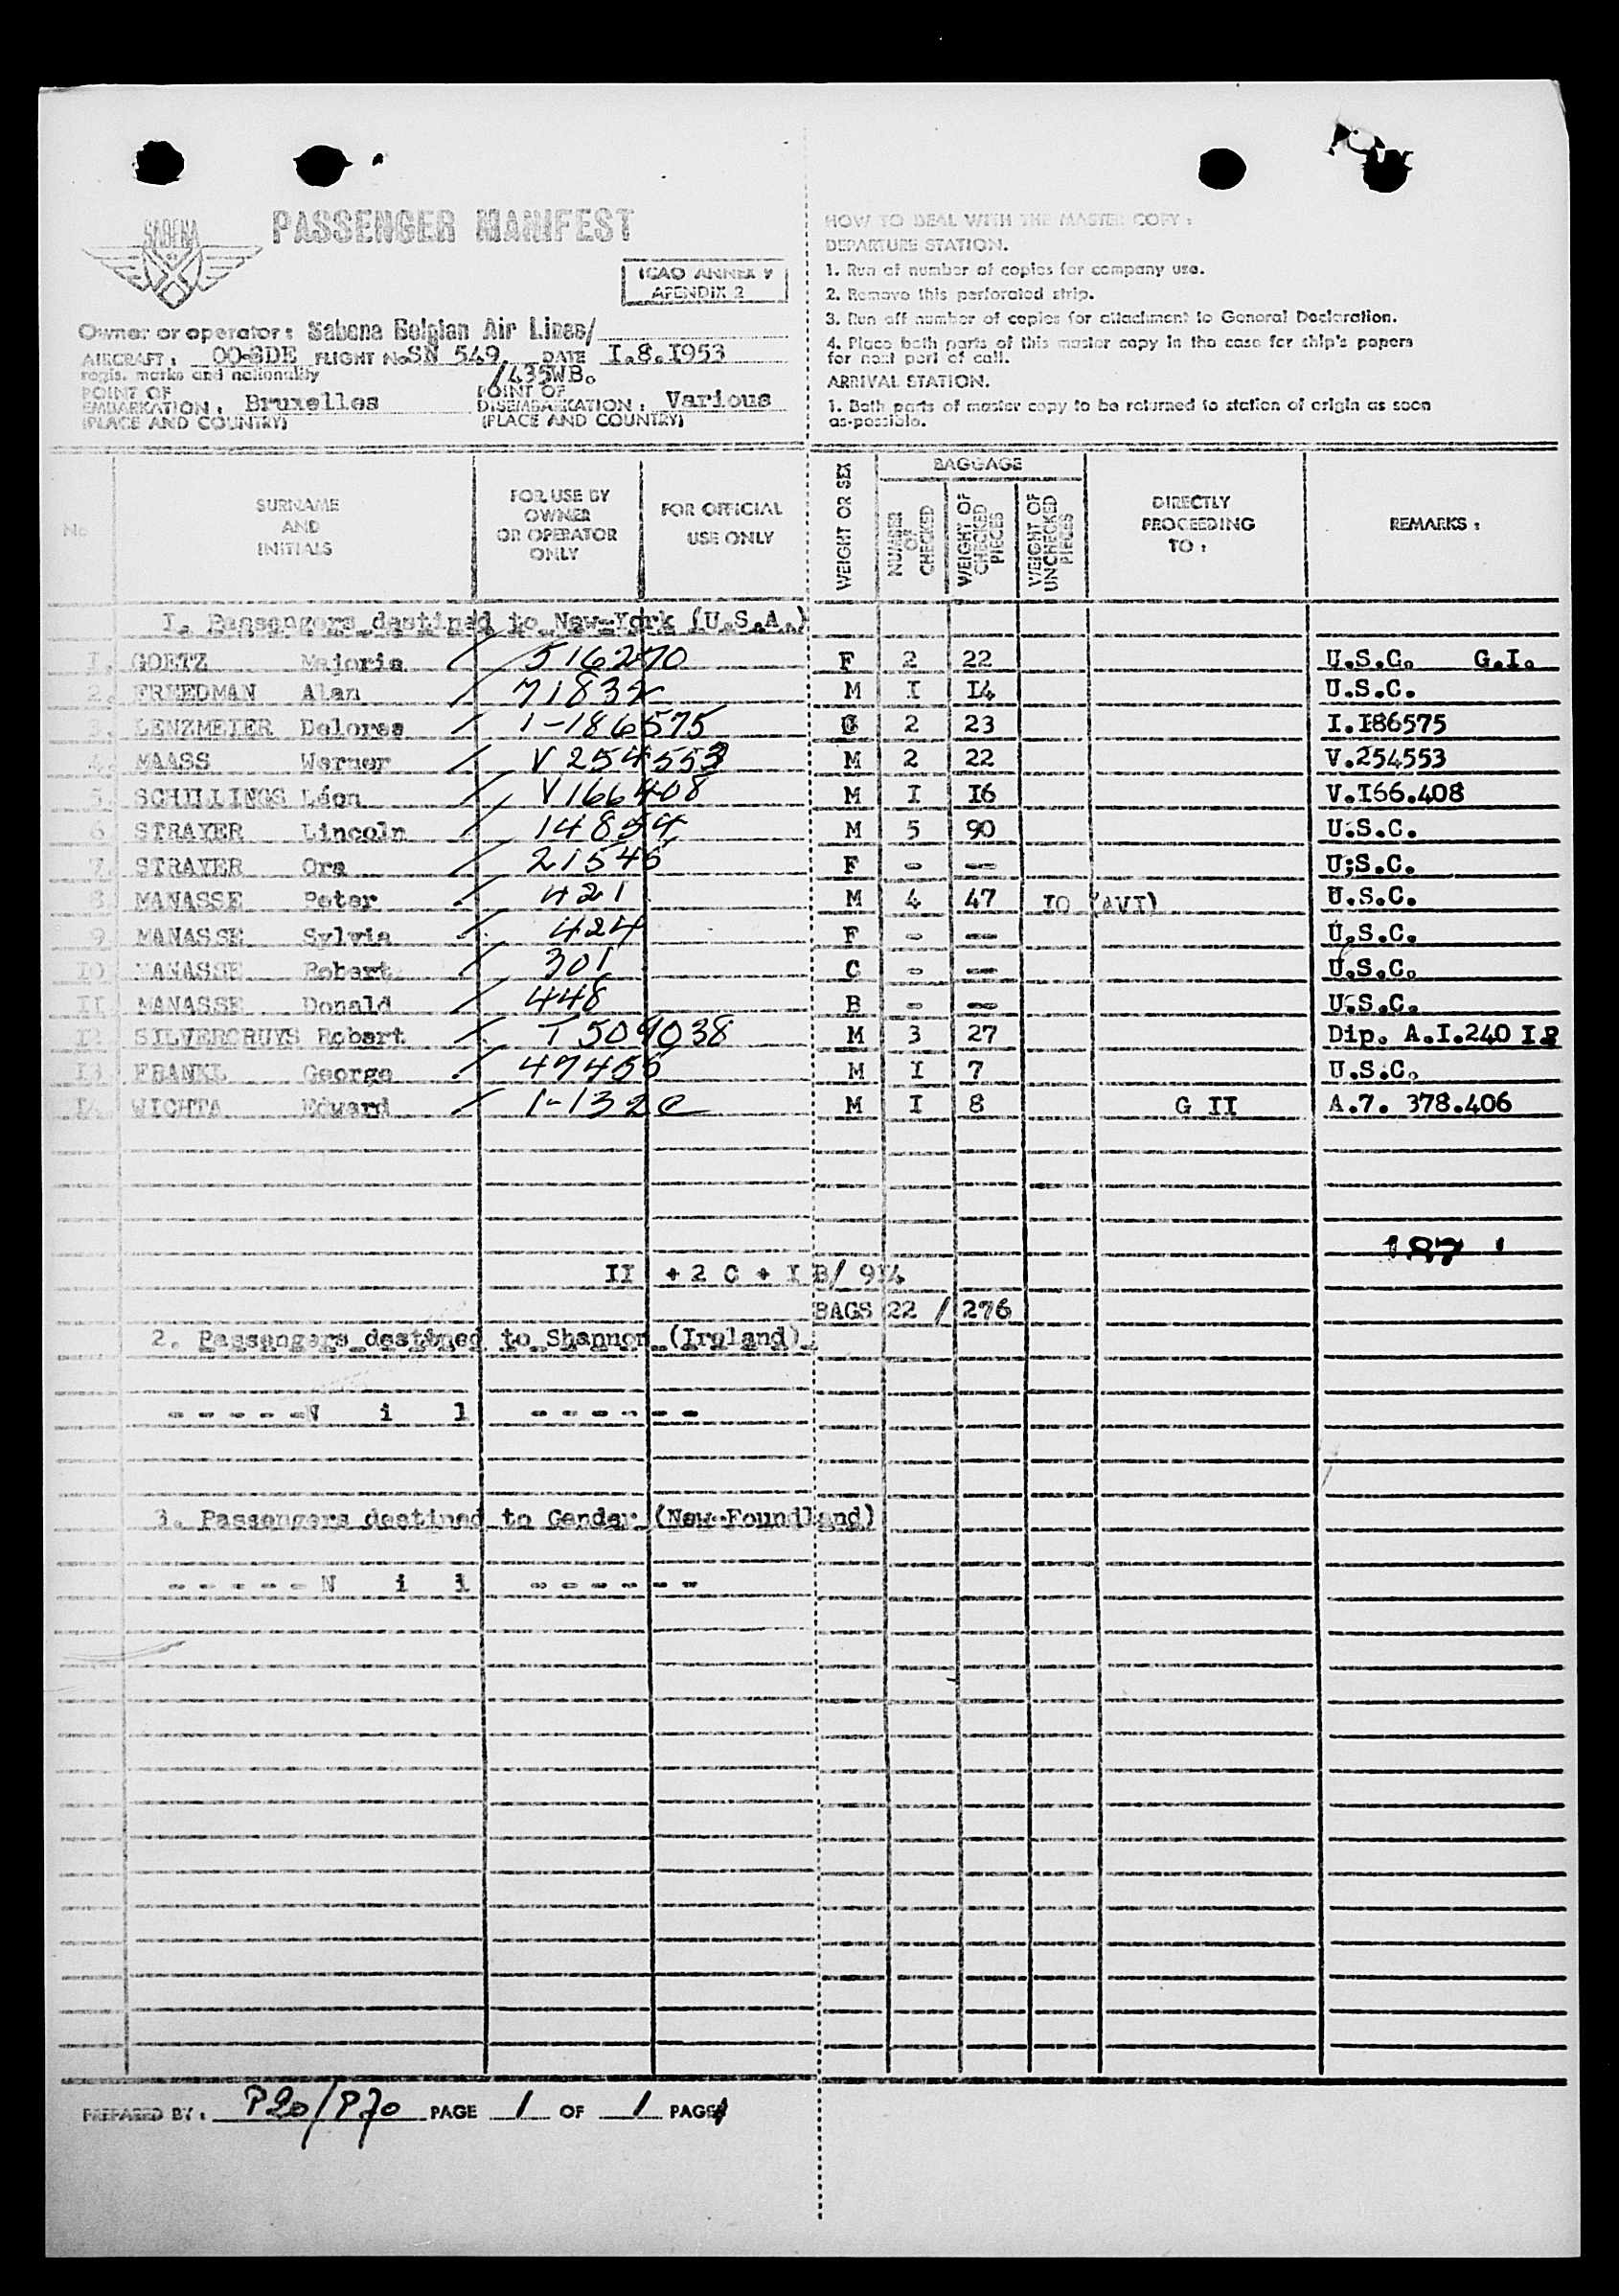 SABENA
PASSENGER MANIFEST
ICAO ANNEX 9
APENDIX 2
Owner or operator: Sabena Belgian Air Lines/
AIRCRAFT: OO-SDE FLIGHT No SN 549 DATE I.8.I953
regis. marks and nationality /435WB.
POINT OF EMBARKATION: Bruxelles POINT OF DISEMBARKATION: Various
(PLACE AND COUNTRY) (PLACE AND COUNTRY)
HOW TO DEAL WITH THE MASTER COPY:
DEPARTURE STATION.
1. Run of number of copies for company use.
2. Remove this perforated strip.
3. Run off number of copies for attachment to General Declaration.
4. Place both parts of this master copy in the case for ship's papers
for next port of call.
ARRIVAL STATION.
1. Both parts of master copy to be returned to station of origin as soon
as possible.
No SURNAME AND INITIALS FOR USE BY OWNER OR OPERATOR ONLY FOR OFFICIAL USE ONLY WEIGHT OR SEX BAGGAGE NUMBER OF CHECKED WEIGHT OF CHECKED PIECES WEIGHT OF UNCHECKED PIECES DIRECTLY PROCEEDING TO: REMARKS:
I. Passengers destined to New-York (U.S.A.)
I. GOETZ Majorie / 516270 F 2 22 U.S.C. G.I.
2. FREEDMAN Alan / 71832 M I I4 U.S.C.
3. LENZMEIER Delores / 1-186575 2 23 I.I86575
4. MAASS Werner / V 254553 M 2 22 V.254553
5. SCHILLINGS Léon / V166408 M I I6 V.I66.408
6. STRAYER Lincoln / 14854 M 5 90 U.S.C.
7. STRAYER Ora / 21546 F - -- U;S.C.
8. MANASSE Peter / 421 M 4 47 IO (AVI) U.S.C.
9 MANASSE Sylvia / 424 F - -- U.S.C.
IO MANASSE Robert / 301 C - -- U.S.C.
II MANASSE Donald / 448 B - -- U.S.C.
I2 SILVERCRUYS Robert / T 509038 M 3 27 Dip. A.I.240 I2
I3 FRANKL George / 47456 M I 7 U.S.C.
I4 WICHTA Edward / 1-132c M I 8 G II A.7. 378.406
187
II + 2 C + I B/ 914
BAGS 22 / 276
2. Passengers destined to Shannon (Ireland)
- - - - - N i l - - - - - -
3. Passengers destined to Gander (New-Foundland)
- - - - - N i l - - - - - -
PREPARED BY: P20/P70 PAGE 1 OF 1 PAGE